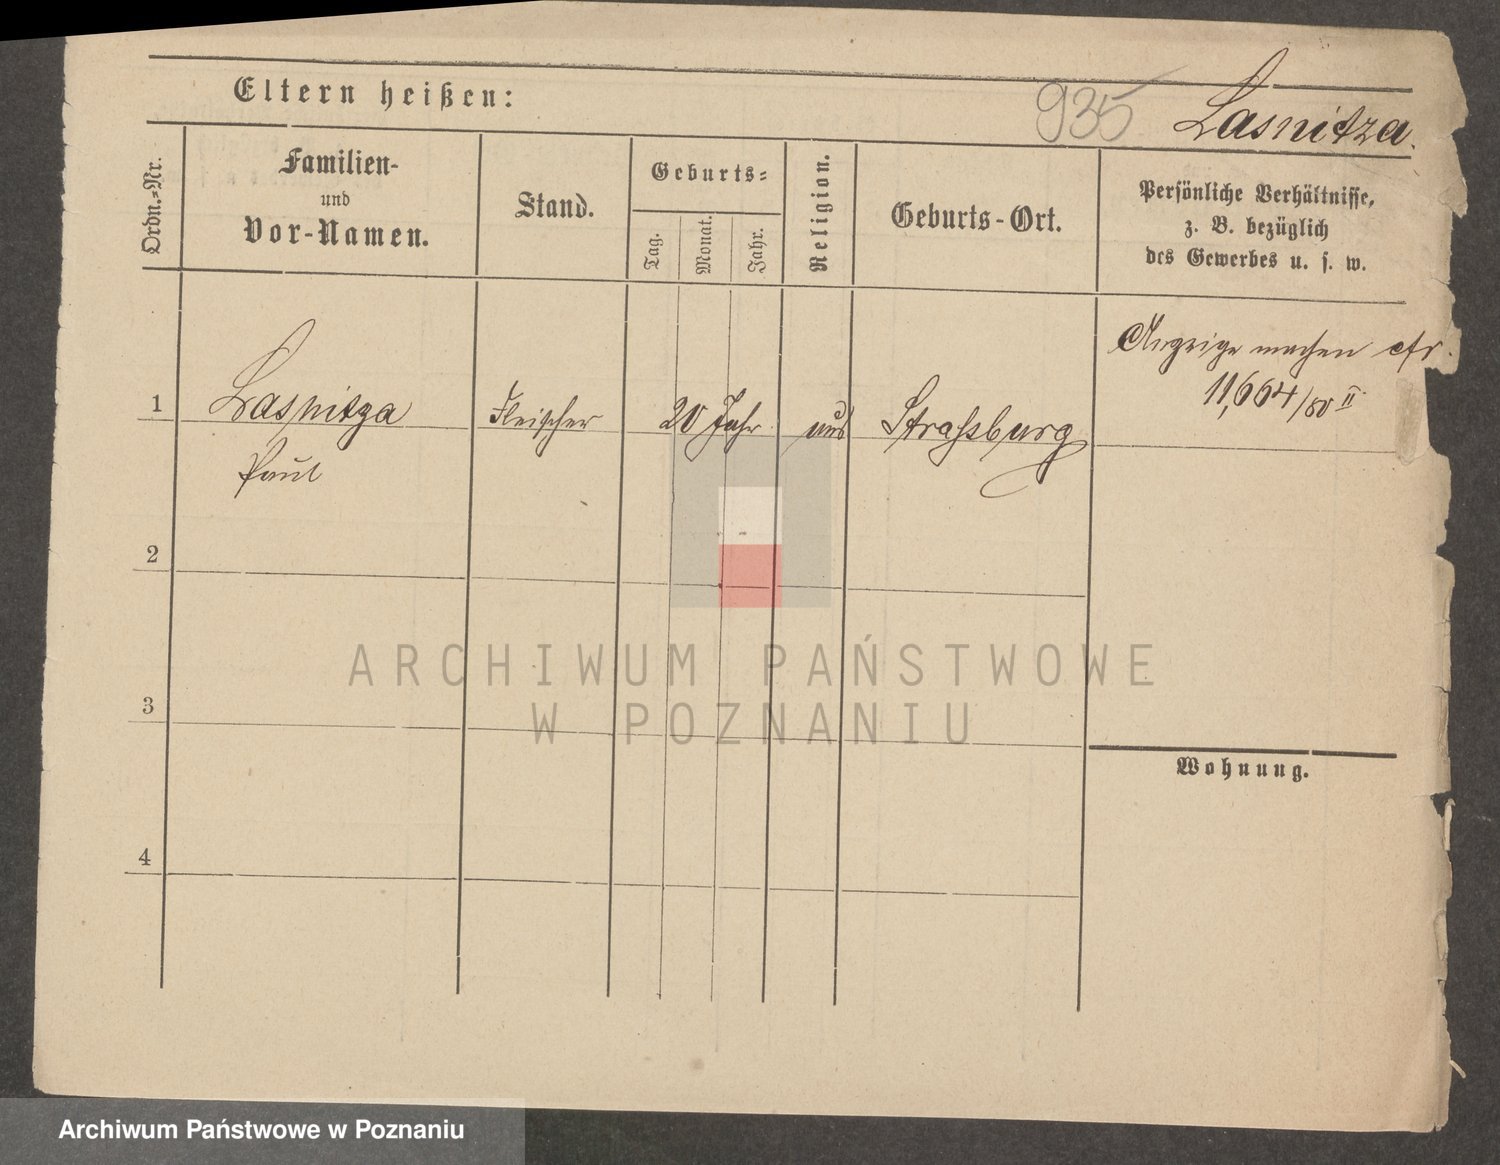 Eltern heißen:
935 Lasnitza.
Ordn.-Nr.
Familien-
und
Vor-Namen.
Stand.
Geburts-
Tag.
Monat.
Jahr.
Religion.
Geburts-Ort.
Persönliche Verhältnisse,
z. B. bezüglich
des Gewerbes u. s. w.
Anzeige machen cfr.
11,664/80 II
1 Lasnitza Fleischer 20 Jahr aus Straßburg
Paul
2
3
4
Wohnung.
ARCHIWUM PAŃSTWOWE
W POZNANIU
Archiwum Państwowe w Poznaniu